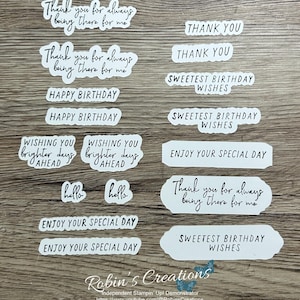 Thank you for always
being there for me
Thank you for always
being there for me
HAPPY BIRTHDAY
HAPPY BIRTHDAY
WISHING YOU
brighter days
AHEAD
WISHING YOU
brighter days
AHEAD
hello
hello
ENJOY YOUR SPECIAL DAY
ENJOY YOUR SPECIAL DAY
THANK YOU
THANK YOU
SWEETEST BIRTHDAY
WISHES
SWEETEST BIRTHDAY
WISHES
ENJOY YOUR SPECIAL DAY
Thank you for always
being there for me
SWEETEST BIRTHDAY
WISHES
Robin's Creations
Independent Stampin' Up! Demonstrator